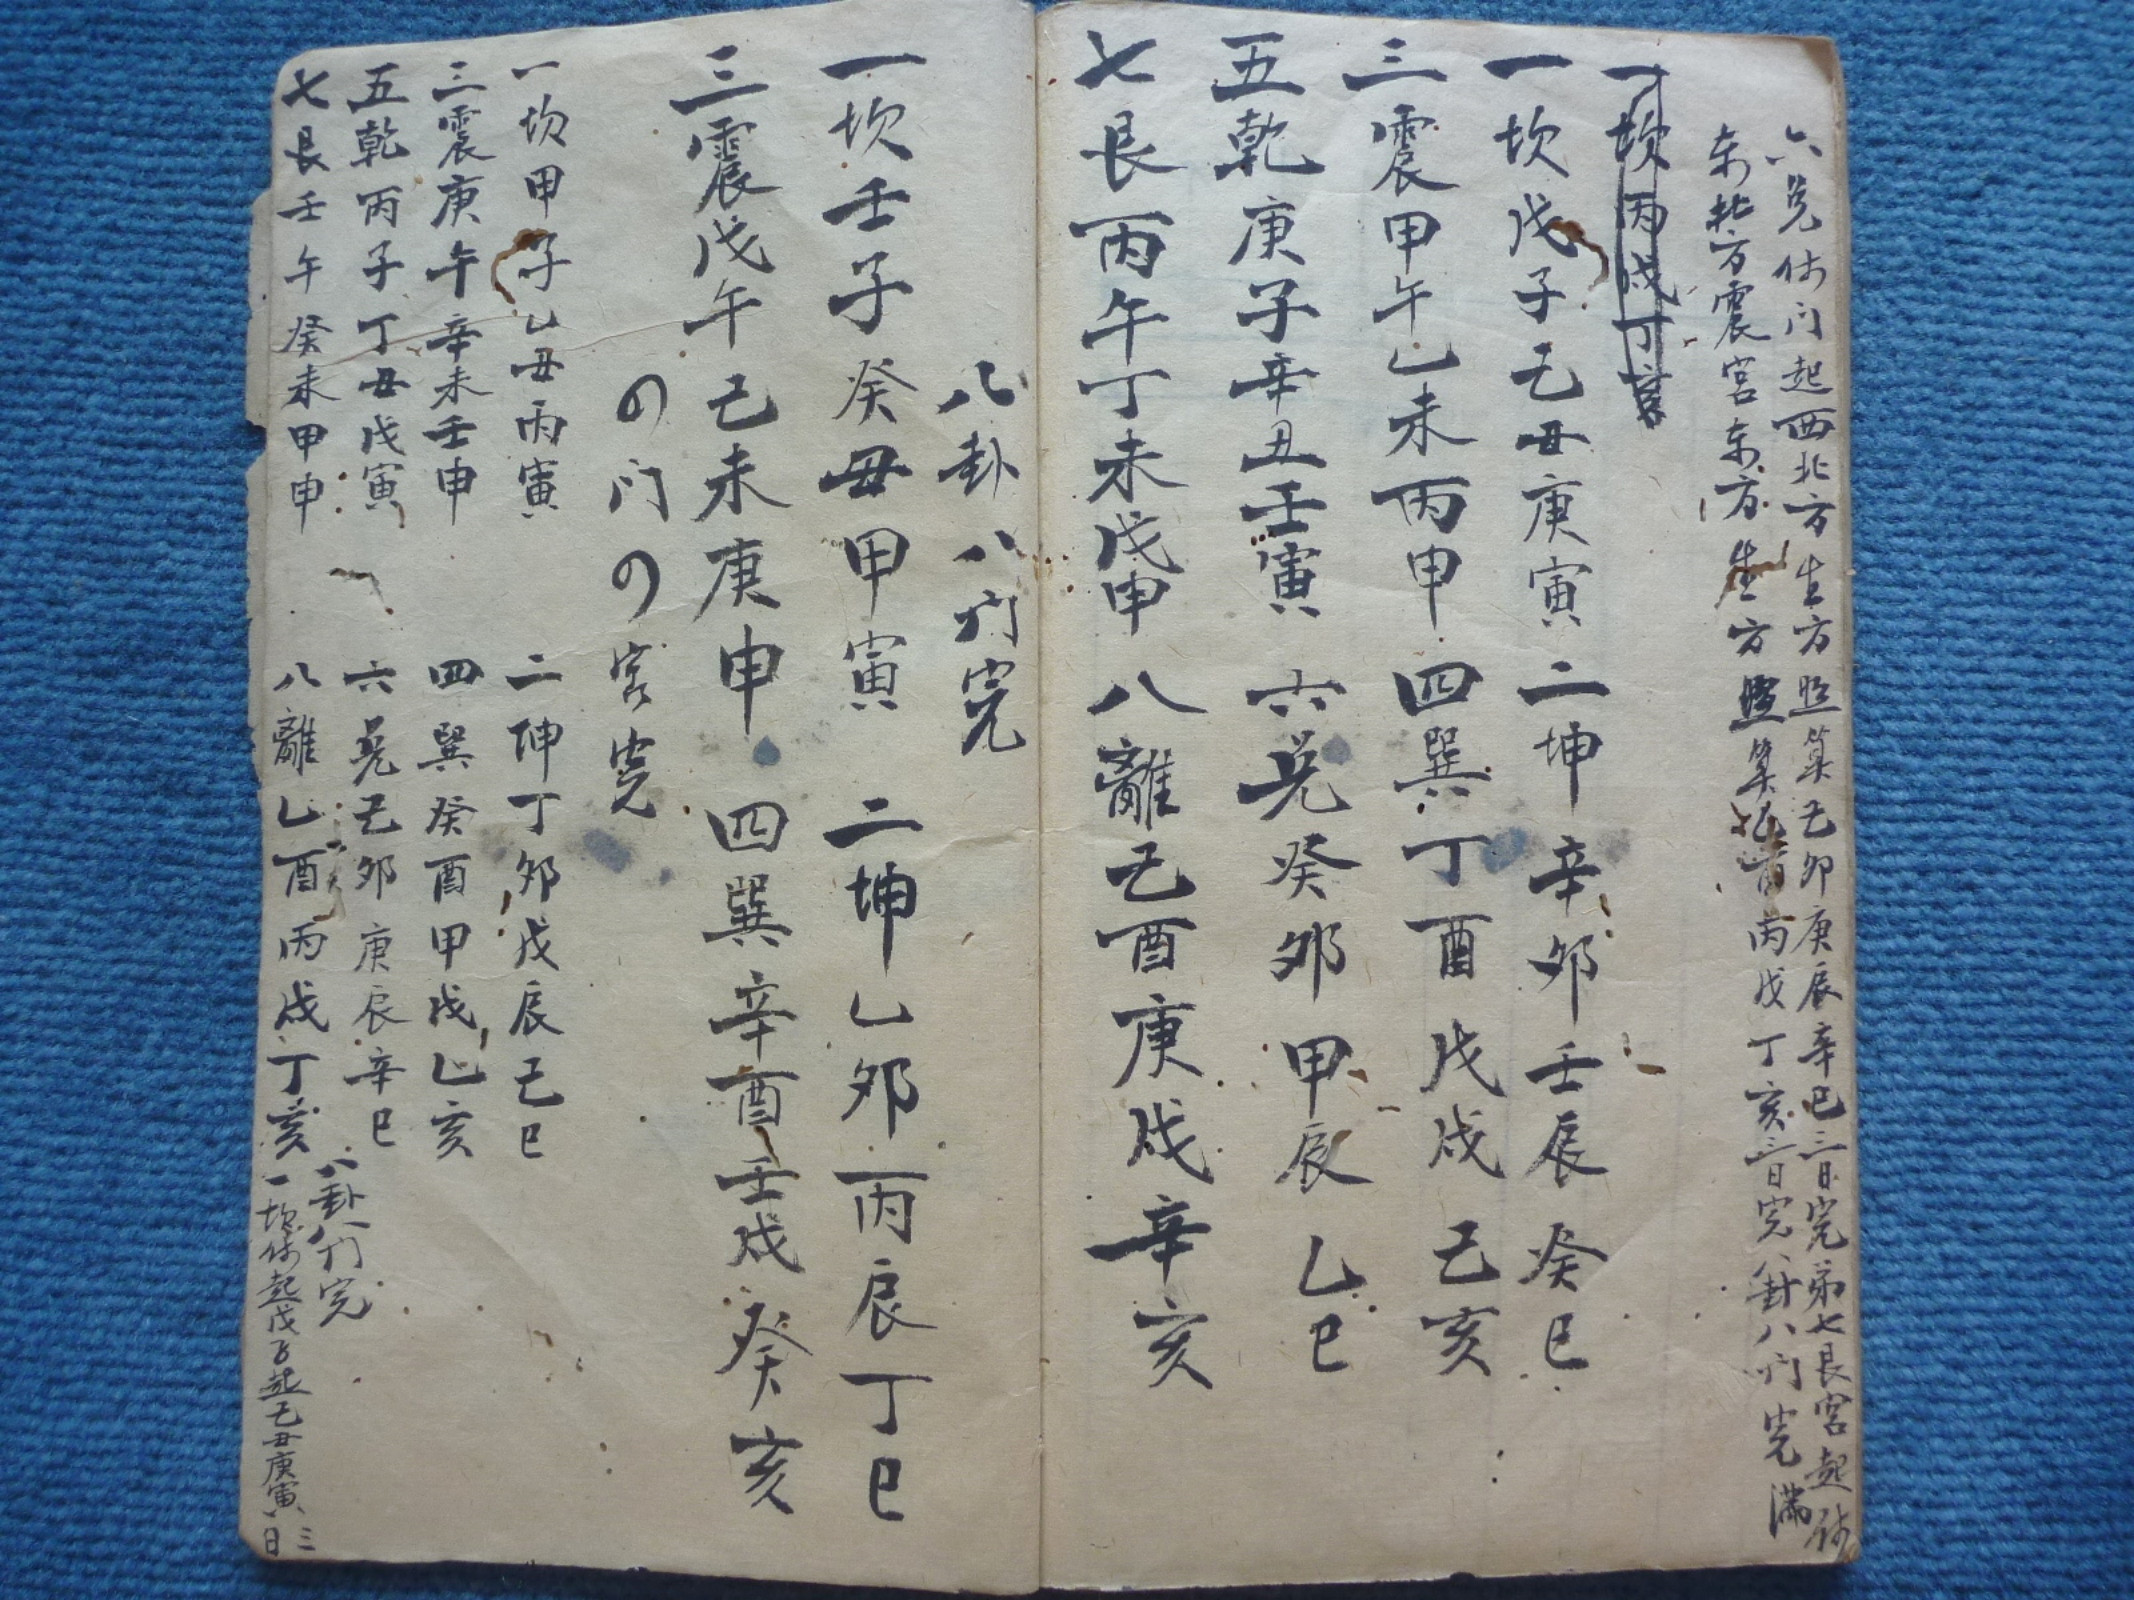 六兑休门起西北方生方照算己卯庚辰辛巳三日完第七艮宫起休
东北方震宫东方生方照算 丙戌丁亥三日完八卦八门完满
一坎丙戌丁亥
一坎戊子己丑庚寅 二坤辛卯壬辰癸巳
三震甲午乙未丙申 四巽丁酉戊戌己亥
五乾庚子辛丑壬寅 六兑癸卯甲辰乙巳
七艮丙午丁未戊申 八離己酉庚戌辛亥
八卦八门完
一坎壬子癸丑甲寅 二坤乙卯丙辰丁巳
三震戊午己未庚申 四巽辛酉壬戌癸亥
の门の宫完
一坎甲子乙丑丙寅 二坤丁卯戊辰己巳
三震庚午辛未壬申 四巽癸酉甲戌乙亥
五乾丙子丁丑戊寅 六兑己卯庚辰辛巳
七艮壬午癸未甲申 八離乙酉丙戌丁亥
八卦八门完
一坎休起戊子起己丑庚寅三日